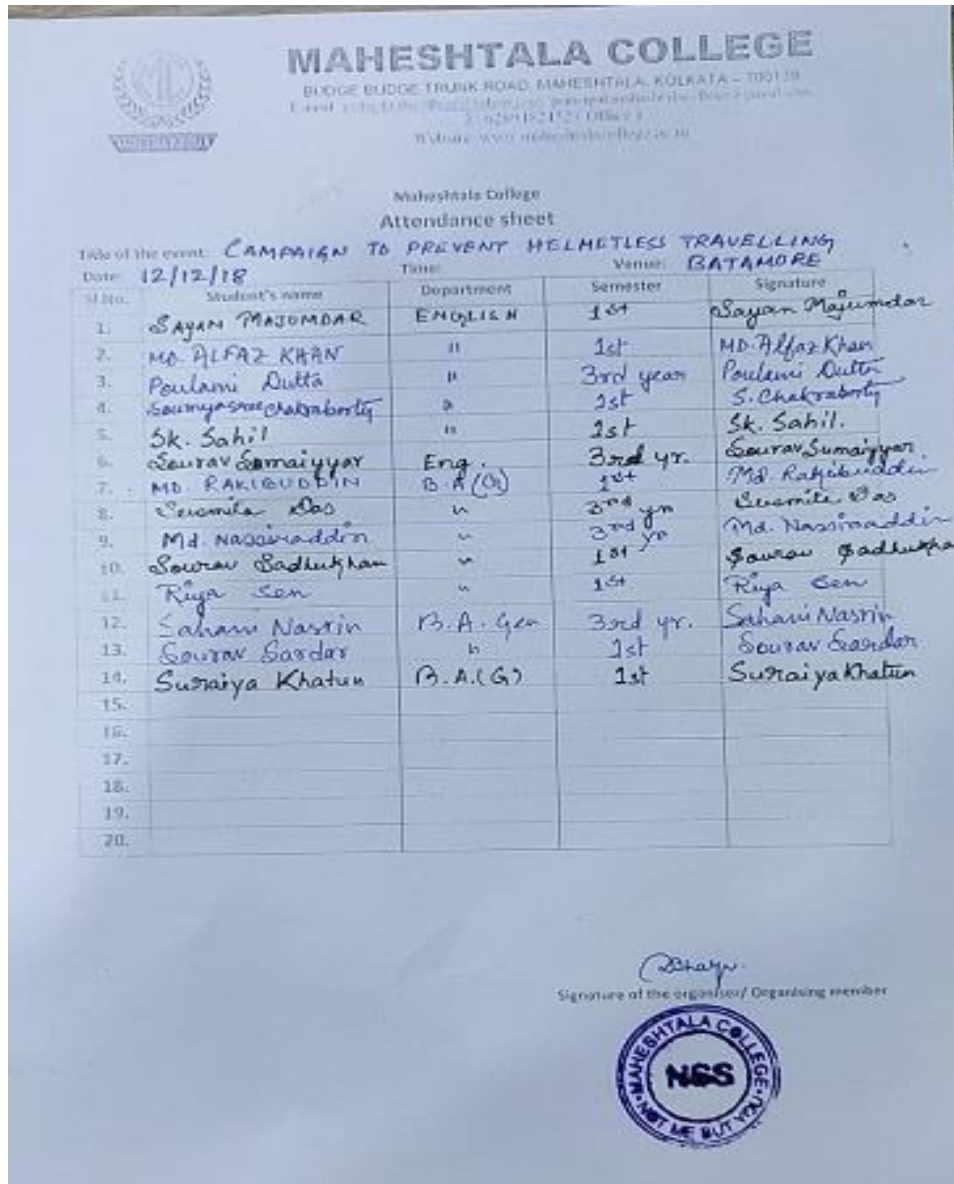 MAHESHTALA COLLEGE
BUDGE BUDGE TRUNK ROAD, MAHESHTALA, KOLKATA – 700139
Maheshtala College
Attendance sheet
Title of the event: CAMPAIGN TO PREVENT HELMETLESS TRAVELLING
Date: 12/12/18 Time: Venue: BATAMORE
Sl No. Student's name Department Semester Signature
1. SAYAN MAJUMDAR ENGLISH 1st Sayan Majumdar
2. MD. ALFAZ KHAN " 1st MD. Alfaz Khan
3. Poulami Dutta " 3rd year Poulami Dutta
4. Soumyasree Chakraborty " 1st S. Chakraborty
5. Sk. Sahil " 1st Sk. Sahil.
6. Sourav Sumaiyyar Eng. 3rd yr. Sourav Sumaiyyar
7. MD. RAKIBUDDIN B.A (G) 1st Md. Rakibuddin
8. Susmita Das " 3rd yr Susmita Das
9. Md. Nassiraddin " 3rd yr Md. Nassiraddin
10. Sourav Sadhukhan " 1st Sourav Sadhukha
11. Riya Sen " 1st Riya Sen
12. Sahani Nasrin B.A. Gen 3rd yr. Sahani Nasrin
13. Sourav Sardar " 1st Sourav Sardar
14. Suraiya Khatun B.A.(G) 1st Suraiya Khatun
15.
16.
17.
18.
19.
20.
Signature of the organiser/ Organising member
MAHESHTALA COLLEGE
NSS
NOT ME BUT YOU